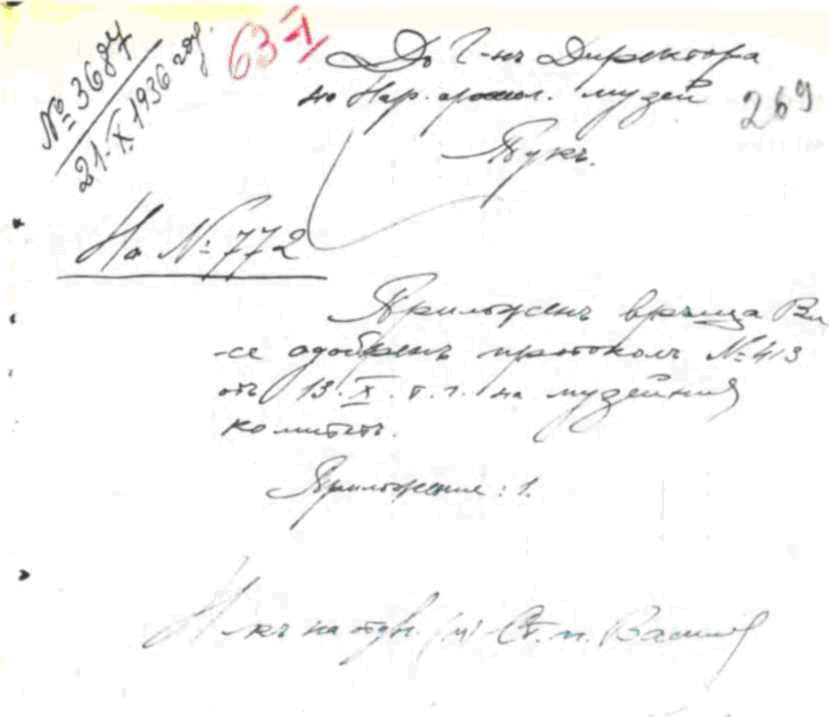 № 3687
21.X.1936 год.
63-X
До Г-нъ Директора
на Нар. археол. музей
269
Тукъ.
На № 772
Приложенъ връща Ви
-се одобренъ протоколъ № 413
отъ 13.X.т.г. на музейния
комитетъ.
Приложение: 1.
Н-къ на отд. (п) Ст. п. Василев